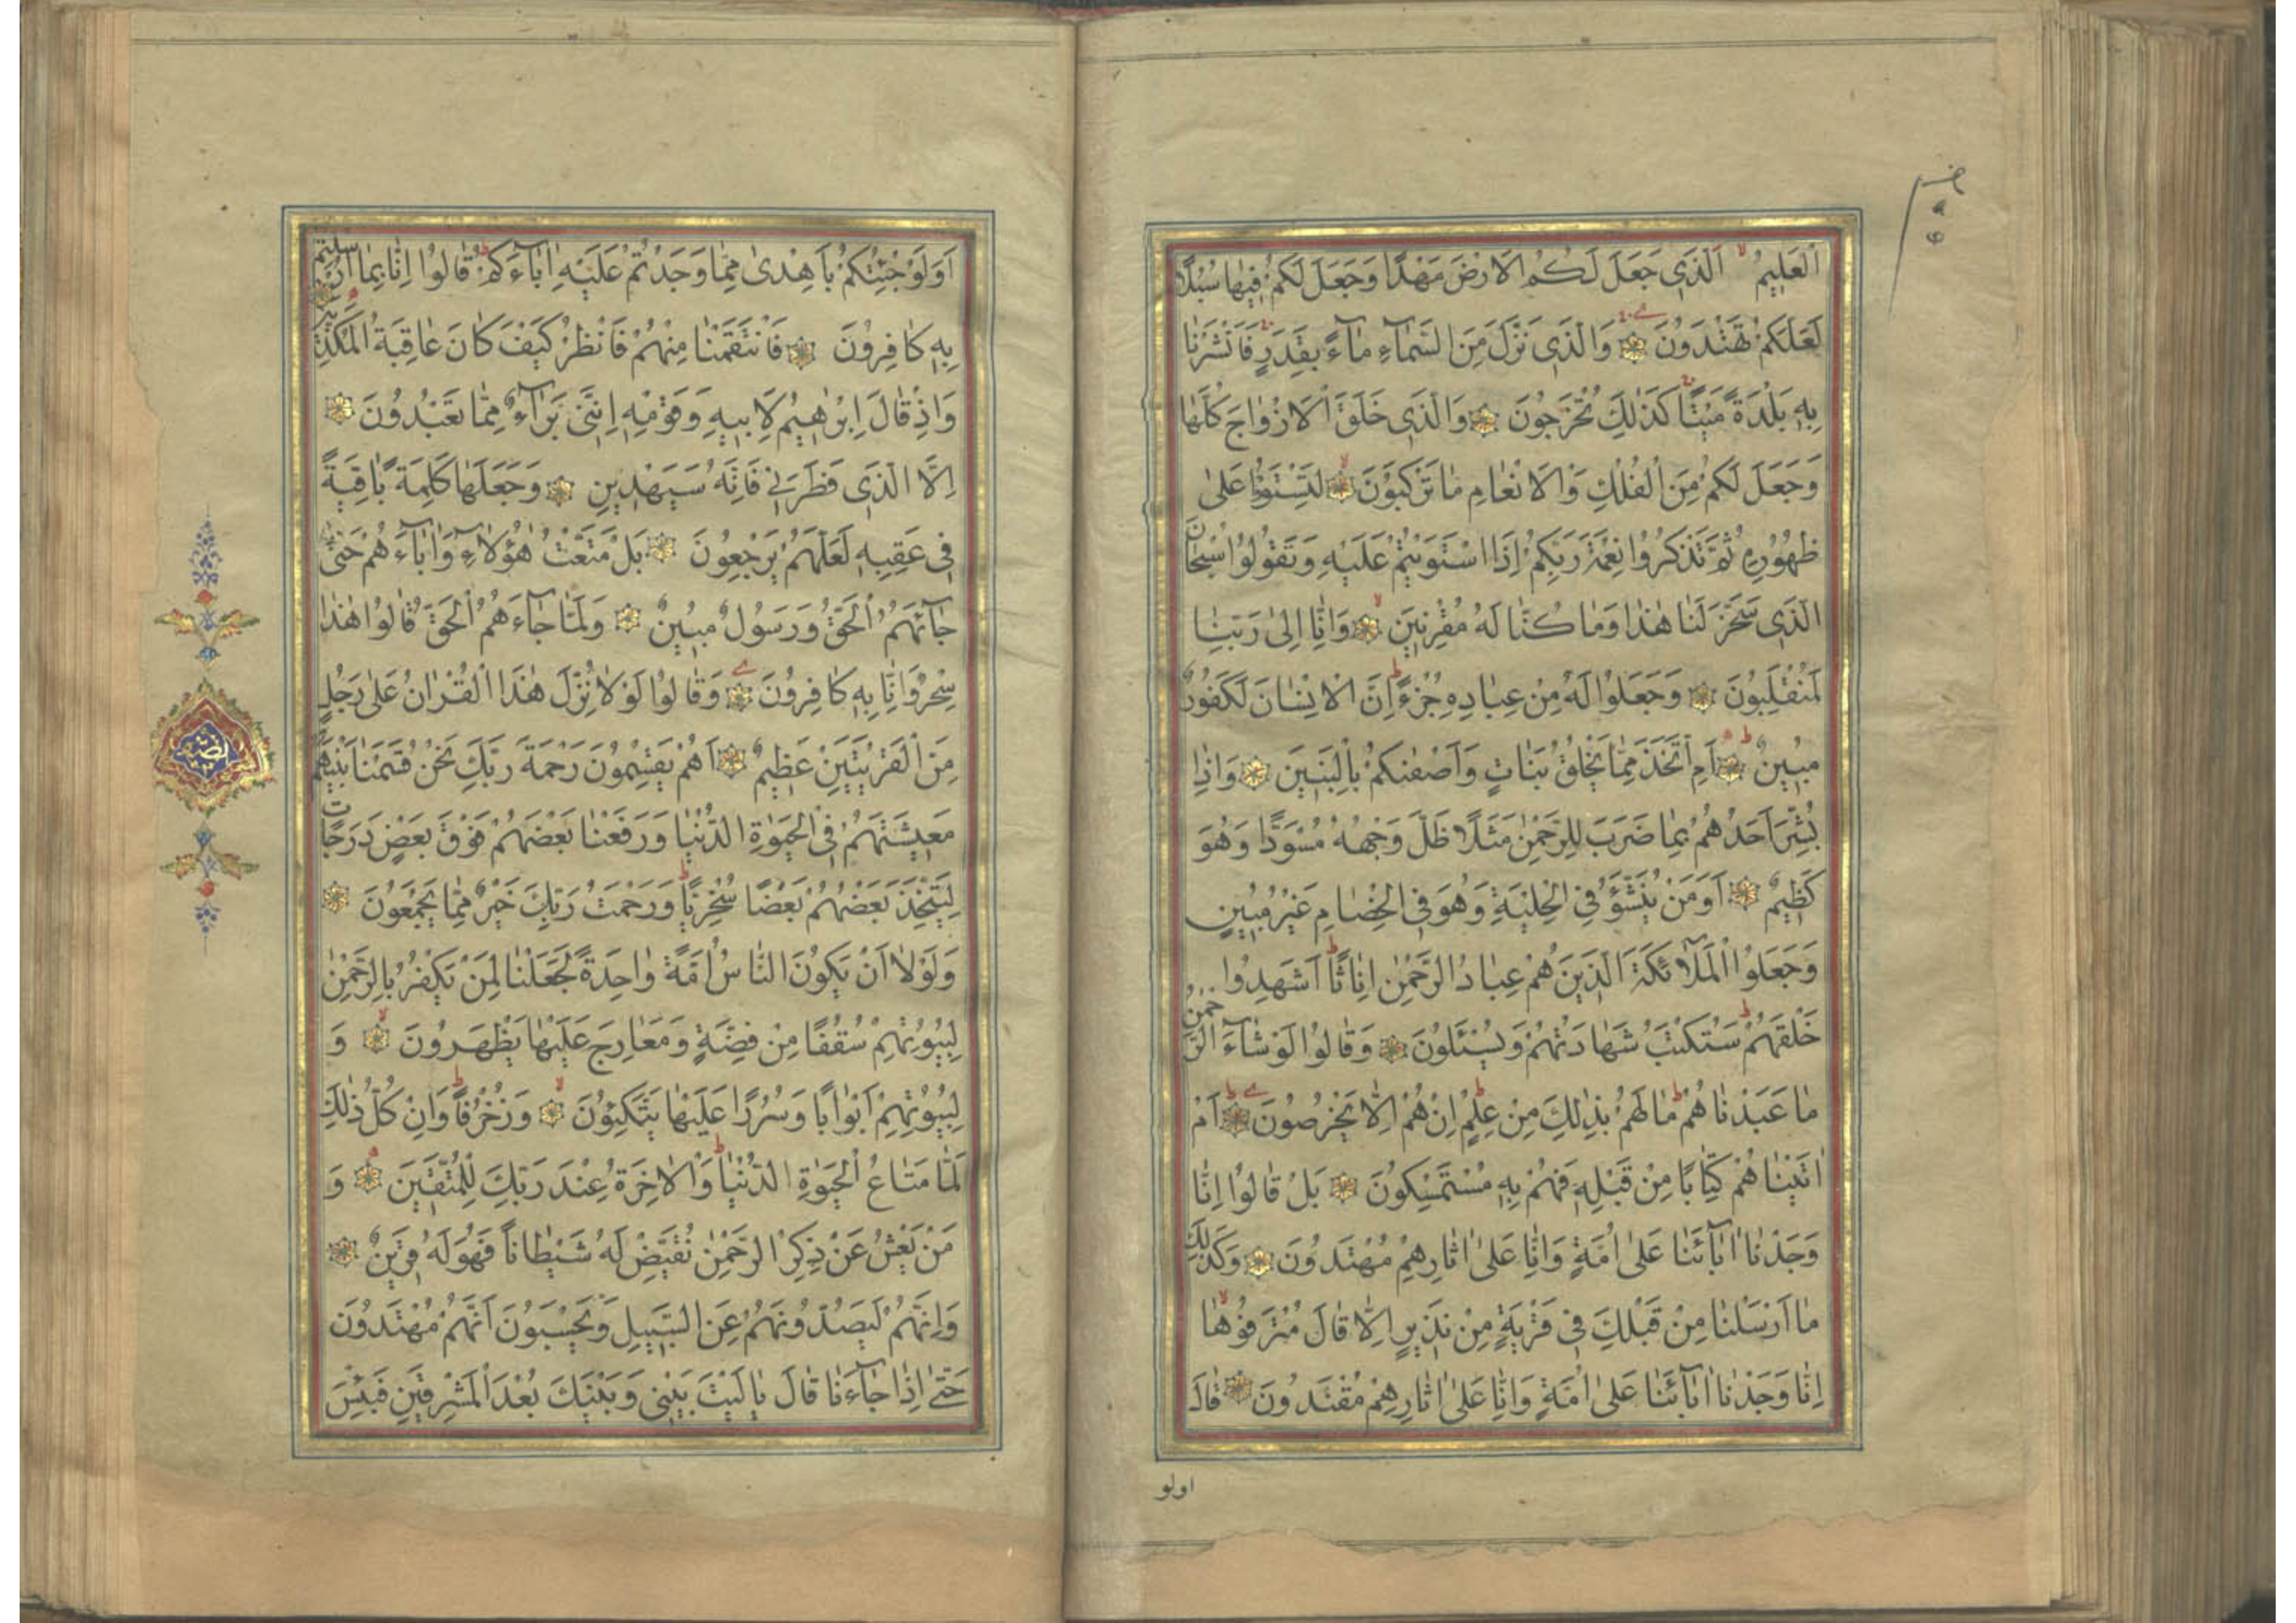 اَلْعَلِيمُ اَلَّذِي جَعَلَ لَكُمُ الْاَرْضَ مَهْدًا وَجَعَلَ لَكُمْ فِيهَا سُبُلًا
لَعَلَّكُمْ تَهْتَدُونَ وَالَّذِي نَزَّلَ مِنَ السَّمَاءِ مَاءً بِقَدَرٍ فَاَنْشَرْنَا
بِهِ بَلْدَةً مَيْتًا كَذٰلِكَ تُخْرَجُونَ وَالَّذِي خَلَقَ الْاَزْوَاجَ كُلَّهَا
وَجَعَلَ لَكُمْ مِنَ الْفُلْكِ وَالْاَنْعَامِ مَا تَرْكَبُونَ لِتَسْتَوُوا عَلٰى
ظُهُورِهِ ثُمَّ تَذْكُرُوا نِعْمَةَ رَبِّكُمْ اِذَا اسْتَوَيْتُمْ عَلَيْهِ وَتَقُولُوا سُبْحَانَ
الَّذِي سَخَّرَ لَنَا هٰذَا وَمَا كُنَّا لَهُ مُقْرِنِينَ وَاِنَّا اِلٰى رَبِّنَا
لَمُنْقَلِبُونَ وَجَعَلُوا لَهُ مِنْ عِبَادِهِ جُزْءً اِنَّ الْاِنْسَانَ لَكَفُورٌ
مُبِينٌ اَمِ اتَّخَذَ مِمَّا يَخْلُقُ بَنَاتٍ وَاَصْفٰىكُمْ بِالْبَنِينَ وَاِذَا
بُشِّرَ اَحَدُهُمْ بِمَا ضَرَبَ لِلرَّحْمٰنِ مَثَلًا ظَلَّ وَجْهُهُ مُسْوَدًّا وَهُوَ
كَظِيمٌ اَوَمَنْ يُنَشَّؤُ فِي الْحِلْيَةِ وَهُوَ فِي الْخِصَامِ غَيْرُ مُبِينٍ
وَجَعَلُوا الْمَلٰٓائِكَةَ الَّذِينَ هُمْ عِبَادُ الرَّحْمٰنِ اِنَاثًا اَشَهِدُوا
خَلْقَهُمْ سَتُكْتَبُ شَهَادَتُهُمْ وَيُسْئَلُونَ وَقَالُوا لَوْ شَاءَ الرَّحْمٰنُ
مَا عَبَدْنَاهُمْ مَا لَهُمْ بِذٰلِكَ مِنْ عِلْمٍ اِنْ هُمْ اِلَّا يَخْرُصُونَ اَمْ
اٰتَيْنَاهُمْ كِتَابًا مِنْ قَبْلِهِ فَهُمْ بِهِ مُسْتَمْسِكُونَ بَلْ قَالُوا اِنَّا
وَجَدْنَا اٰبَائَنَا عَلٰى اُمَّةٍ وَاِنَّا عَلٰى اٰثَارِهِمْ مُهْتَدُونَ وَكَذٰلِكَ
مَا اَرْسَلْنَا مِنْ قَبْلِكَ فِي قَرْيَةٍ مِنْ نَذِيرٍ اِلَّا قَالَ مُتْرَفُوهَا
اِنَّا وَجَدْنَا اٰبَائَنَا عَلٰى اُمَّةٍ وَاِنَّا عَلٰى اٰثَارِهِمْ مُقْتَدُونَ قَالَ
اولو
اَوَلَوْ جِئْتُكُمْ بِاَهْدٰى مِمَّا وَجَدْتُمْ عَلَيْهِ اٰبَاءَكُمْ قَالُوا اِنَّا بِمَا اُرْسِلْتُمْ
بِهِ كَافِرُونَ فَانْتَقَمْنَا مِنْهُمْ فَانْظُرْ كَيْفَ كَانَ عَاقِبَةُ الْمُكَذِّبِينَ
وَاِذْ قَالَ اِبْرٰهِيمُ لِاَبِيهِ وَقَوْمِهِ اِنَّنِي بَرَاءٌ مِمَّا تَعْبُدُونَ
اِلَّا الَّذِي فَطَرَنِي فَاِنَّهُ سَيَهْدِينِ وَجَعَلَهَا كَلِمَةً بَاقِيَةً
فِي عَقِبِهِ لَعَلَّهُمْ يَرْجِعُونَ بَلْ مَتَّعْتُ هٰؤُلَاءِ وَاٰبَاءَهُمْ حَتّٰى
جَاءَهُمُ الْحَقُّ وَرَسُولٌ مُبِينٌ وَلَمَّا جَاءَهُمُ الْحَقُّ قَالُوا هٰذَا
سِحْرٌ وَاِنَّا بِهِ كَافِرُونَ وَقَالُوا لَوْلَا نُزِّلَ هٰذَا الْقُرْاٰنُ عَلٰى رَجُلٍ
مِنَ الْقَرْيَتَيْنِ عَظِيمٌ اَهُمْ يَقْسِمُونَ رَحْمَةَ رَبِّكَ نَحْنُ قَسَمْنَا بَيْنَهُمْ
مَعِيشَتَهُمْ فِي الْحَيٰوةِ الدُّنْيَا وَرَفَعْنَا بَعْضَهُمْ فَوْقَ بَعْضٍ دَرَجَاتٍ
لِيَتَّخِذَ بَعْضُهُمْ بَعْضًا سُخْرِيًّا وَرَحْمَتُ رَبِّكَ خَيْرٌ مِمَّا يَجْمَعُونَ
وَلَوْلَا اَنْ يَكُونَ النَّاسُ اُمَّةً وَاحِدَةً لَجَعَلْنَا لِمَنْ يَكْفُرُ بِالرَّحْمٰنِ
لِبُيُوتِهِمْ سُقُفًا مِنْ فِضَّةٍ وَمَعَارِجَ عَلَيْهَا يَظْهَرُونَ وَ
لِبُيُوتِهِمْ اَبْوَابًا وَسُرُرًا عَلَيْهَا يَتَّكِئُونَ وَزُخْرُفًا وَاِنْ كُلُّ ذٰلِكَ
لَمَّا مَتَاعُ الْحَيٰوةِ الدُّنْيَا وَالْاٰخِرَةُ عِنْدَ رَبِّكَ لِلْمُتَّقِينَ وَ
مَنْ يَعْشُ عَنْ ذِكْرِ الرَّحْمٰنِ نُقَيِّضْ لَهُ شَيْطَانًا فَهُوَ لَهُ قَرِينٌ
وَاِنَّهُمْ لَيَصُدُّونَهُمْ عَنِ السَّبِيلِ وَيَحْسَبُونَ اَنَّهُمْ مُهْتَدُونَ
حَتّٰى اِذَا جَاءَنَا قَالَ يَا لَيْتَ بَيْنِي وَبَيْنَكَ بُعْدَ الْمَشْرِقَيْنِ فَبِئْسَ